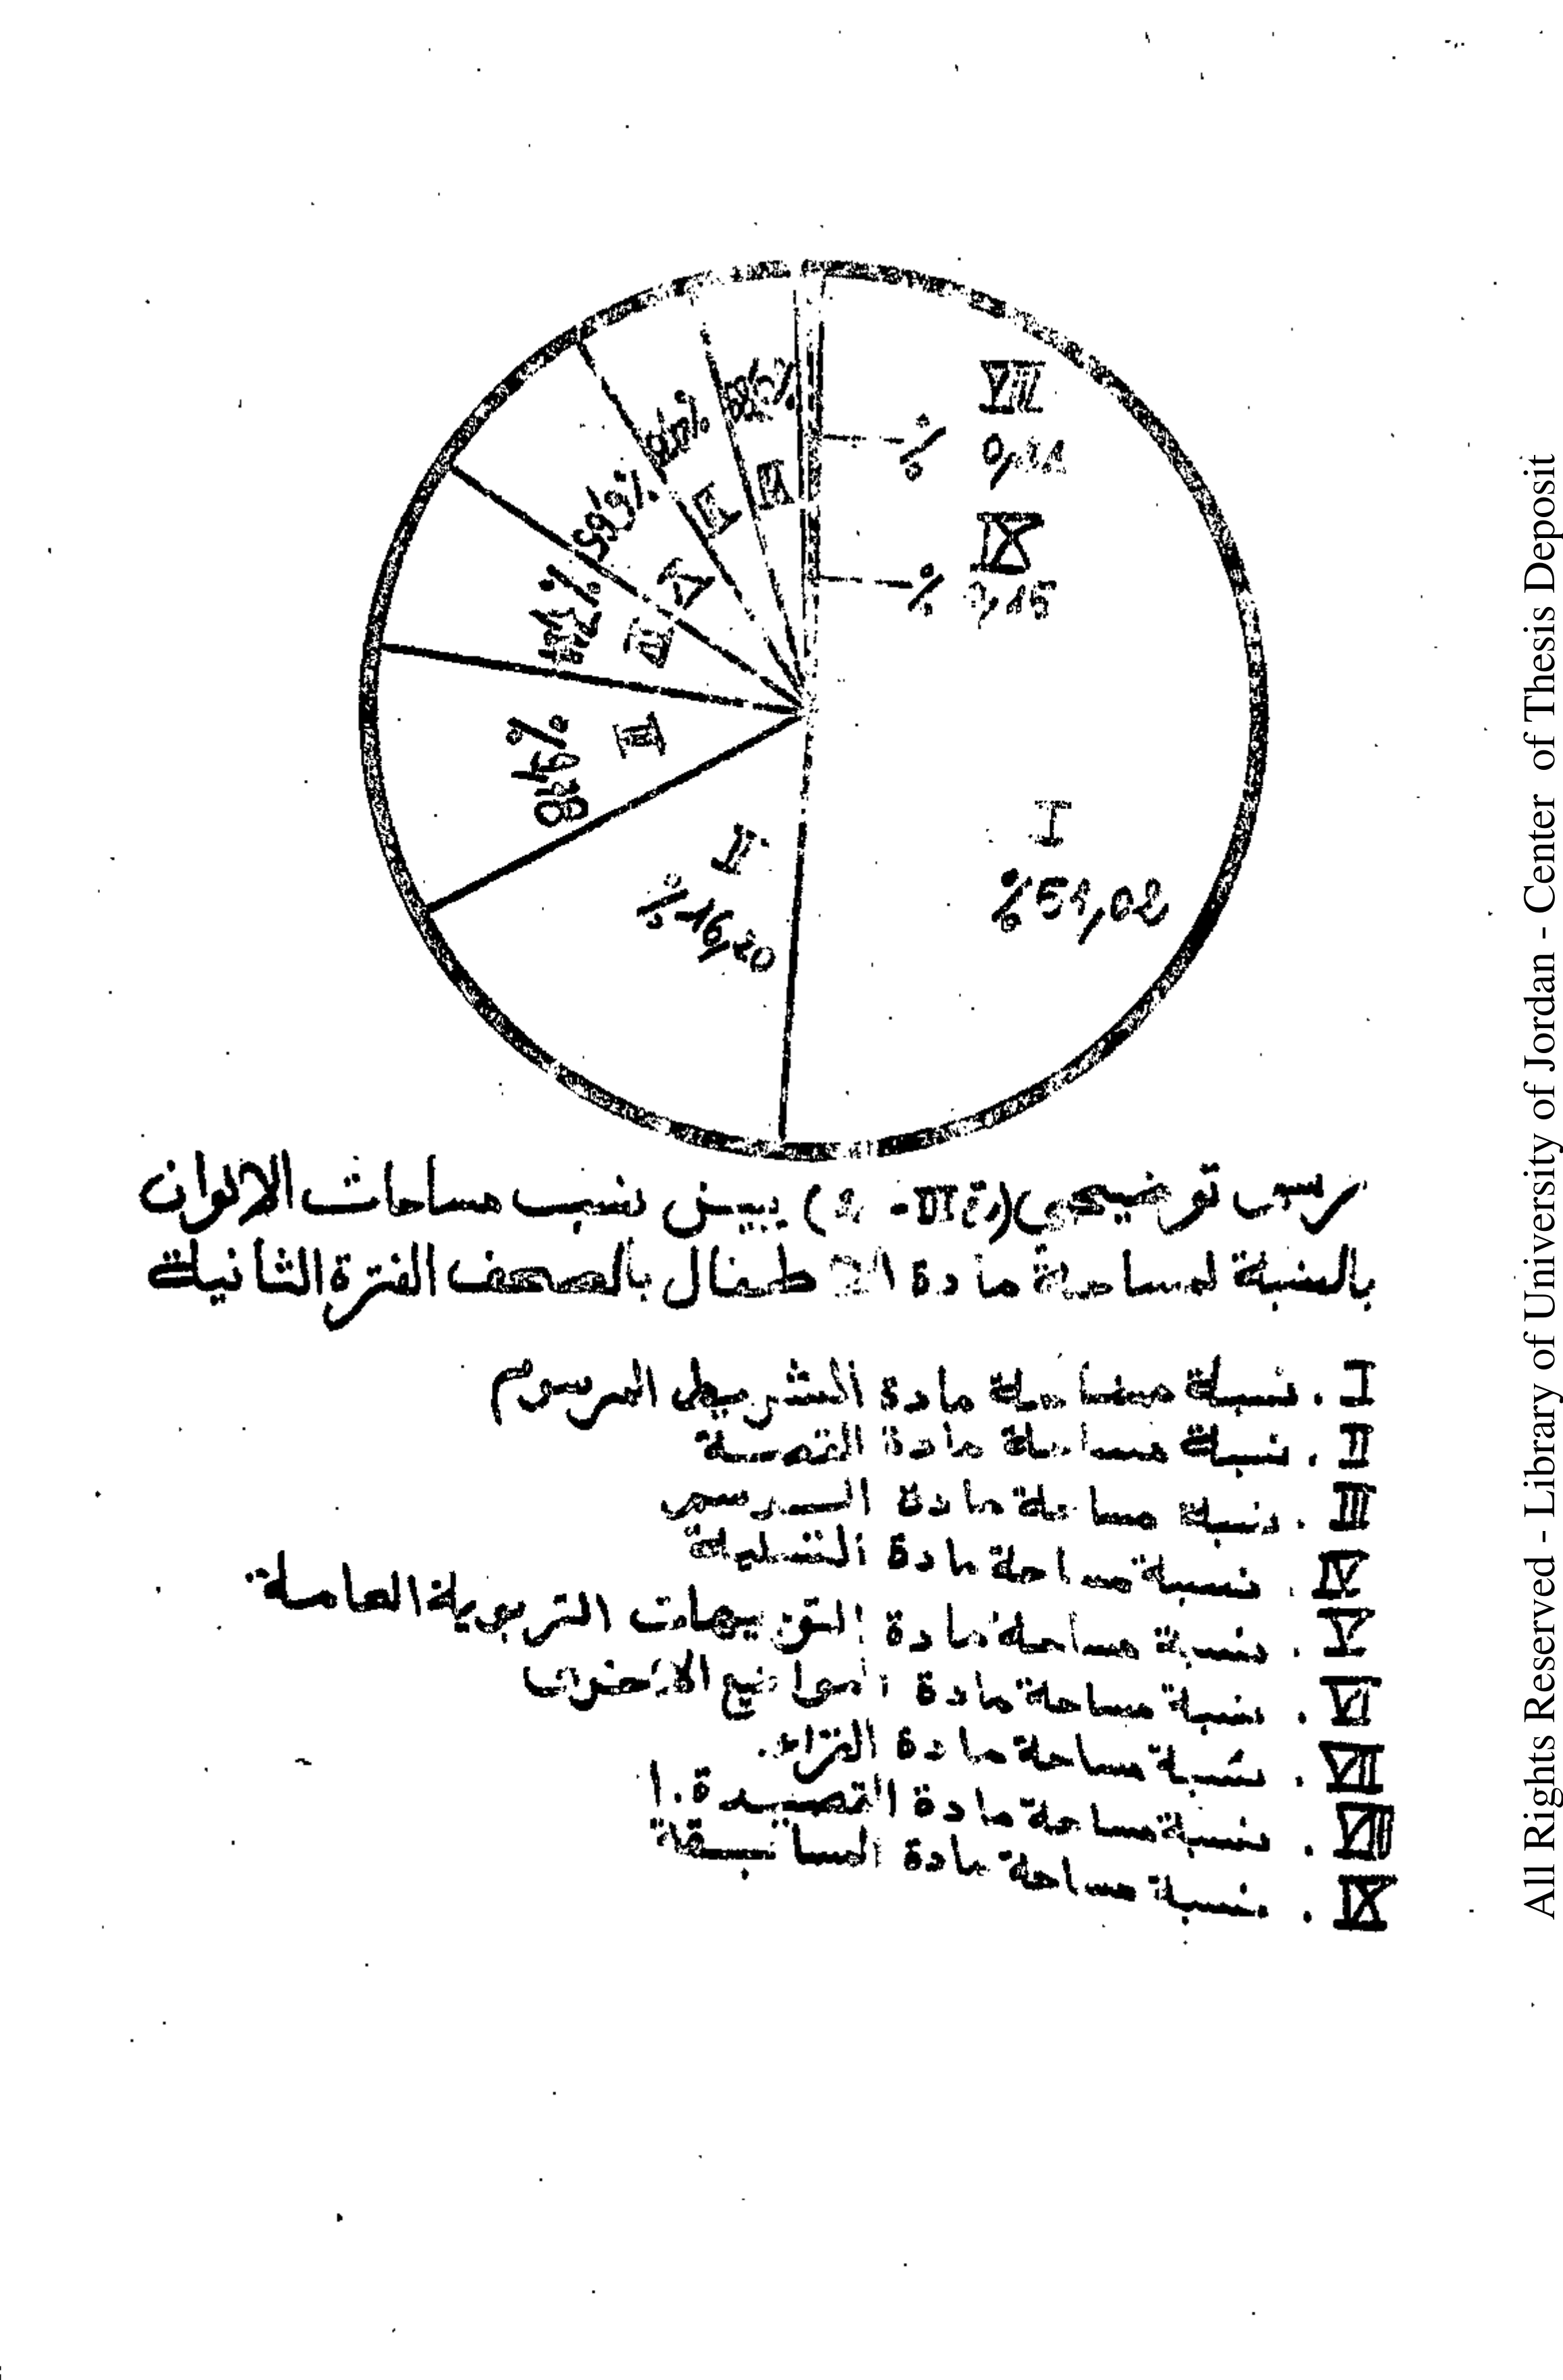 VIII
% 0,11
IX
% 0,15
VII
VI
V
%5,95
IV
III
%9,48
II
% 16,20
I
%51,02
رسم توضيحي (رقم III - 2) يبين نسب مساحات الالوان
بالنسبة لمساحة مادة الاطفال بالصحف الفترة الثانية
I . نسبة مساحة مادة الشريط المرسوم
II . نسبة مساحة مادة القصة
III . نسبة مساحة مادة الرسم
IV . نسبة مساحة مادة التسلية
V . نسبة مساحة مادة التوجيهات التربوية العامة
VI . نسبة مساحة مادة المواضيع الاخرى
VII . نسبة مساحة مادة
VIII . نسبة مساحة مادة القصيدة
IX . نسبة مساحة مادة المسابقة
All Rights Reserved - Library of University of Jordan - Center of Thesis Deposit